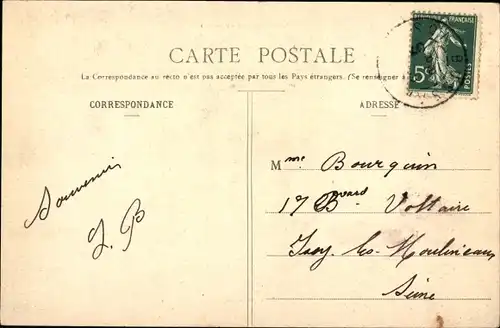 CARTE POSTALE
La Correspondance au recto n'est pas acceptée par tous les Pays étrangers. (Se renseigner à
CORRESPONDANCE
ADRESSE
FRANÇAISE
5c
POSTES
Souvenir
J. B
Mme Bourquin
17 Bvard Voltaire
Issy les Moulineaux
Seine